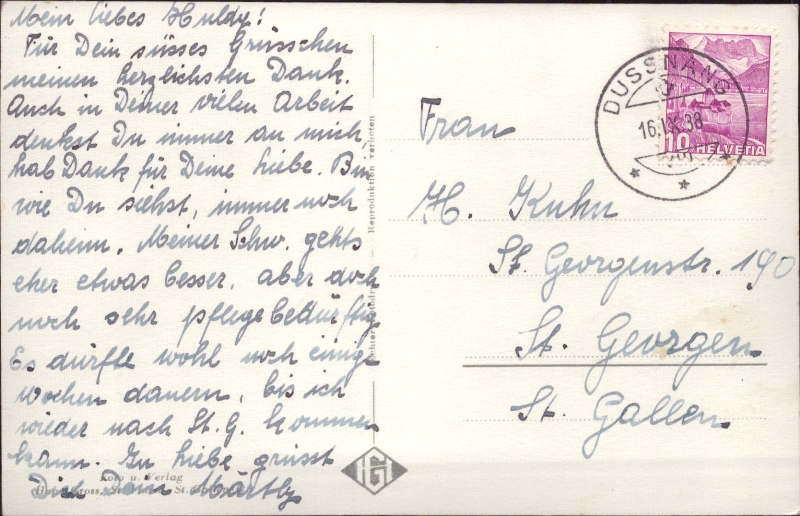 Mein liebes Huldy!
Für Dein süsses Grüsschen
meinen herzlichsten Dank.
Auch in Deiner vielen Arbeit
denkst Du immer an mich,
hab Dank für Deine Liebe. Bin
wie Du siehst, immer noch
daheim. Meiner Schw. gehts
eher etwas besser, aber doch
noch sehr pflegebedürftig.
Es dürfte wohl noch einige
Wochen dauern, bis ich
wieder nach St. G. kommen
kann. In Liebe grüsst
Dich Dein Märtly
Foto u. Verlag
Gross, St. Gallen
Reproduktion verboten
HG
DUSSNANG
16.IX.38
10 HELVETIA
Frau
H. Kuhn
St. Georgenstr. 190
St. Georgen
St. Gallen